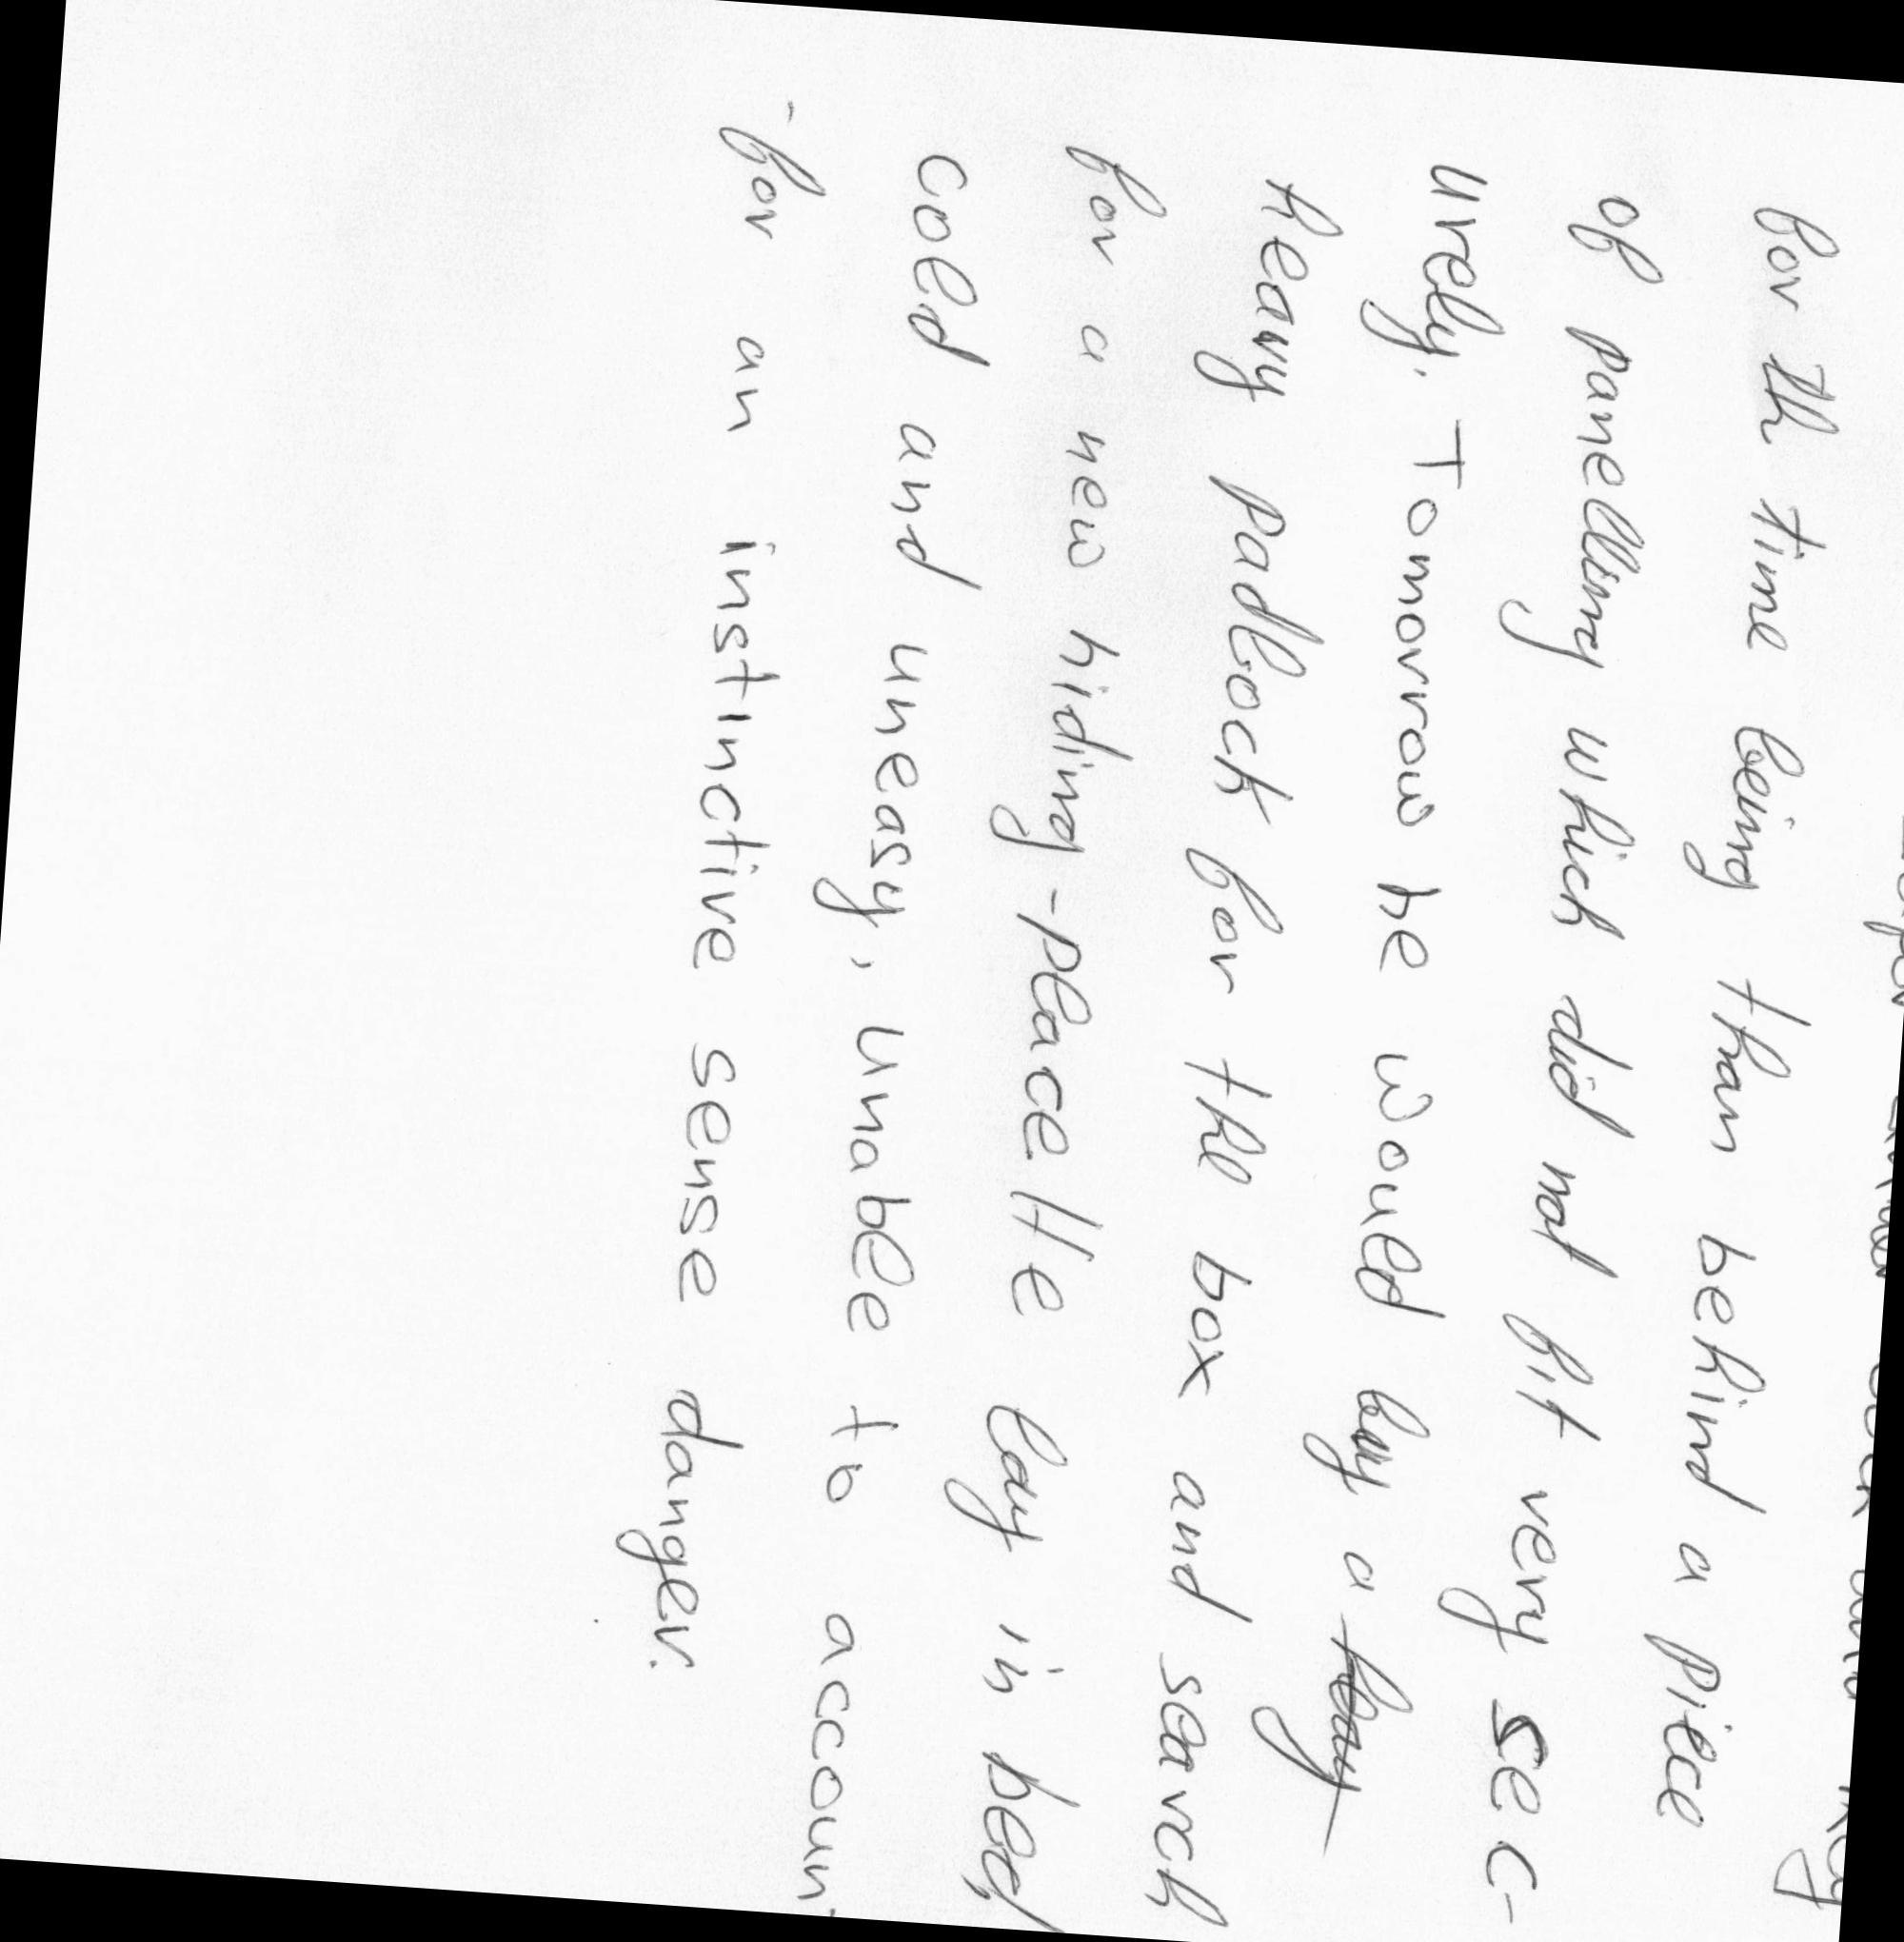 for th time being than behind a piece
of panelling which did not fit very sec-
urely. Tomorrow he would buy a
heavy padlock for the box and search
for a new hiding-place He lay in bed,
cold and uneasy, unable to accoun
for an instinctive sense danger.